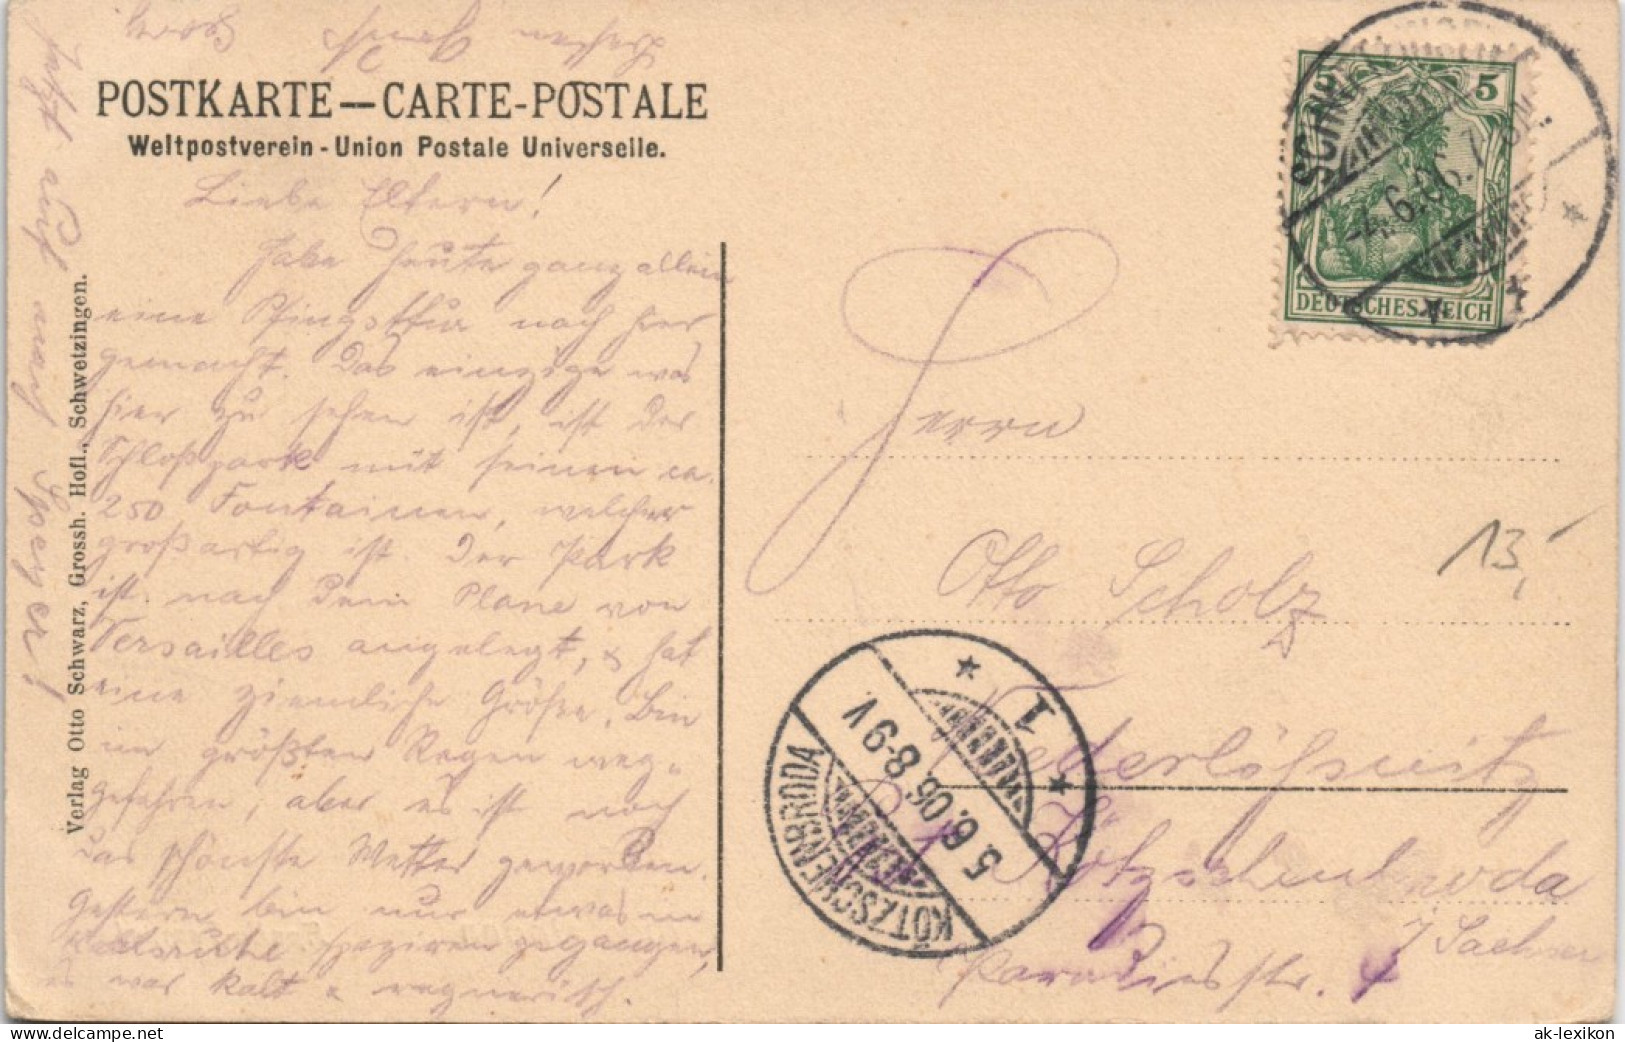 POSTKARTE — CARTE-POSTALE
Weltpostverein - Union Postale Universelle.
Liebe Eltern!
Habe heute ganz allein
eine Pfingsttur nach hier
gemacht. Das einzige was
hier zu sehen ist, ist der
Schloßpark mit seinen ca.
250 Fontainen, welcher
großartig ist. Der Park
ist nach dem Plane von
Versailles angelegt, & hat
eine ziemliche Größe. Bin
im größten Regen weg-
gefahren, aber es ist noch
das schönste Wetter geworden.
Gestern bin nur etwas in
Karlsruhe spaziren gegangen,
es war kalt & regnerisch.
Jetzt auf nach Speyer!
Verlag Otto Schwarz, Grossh. Hofl., Schwetzingen.
5
DEUTSCHES REICH
4.6.06.
Herrn
Otto Scholz
Niederlößnitz
Kötzschenbroda
i/Sachsen
Paradiesstr. 4
13,-
KÖTZSCHENBRODA
5.6.06. 8-9 V
I
delcampe.net
ak-lexikon